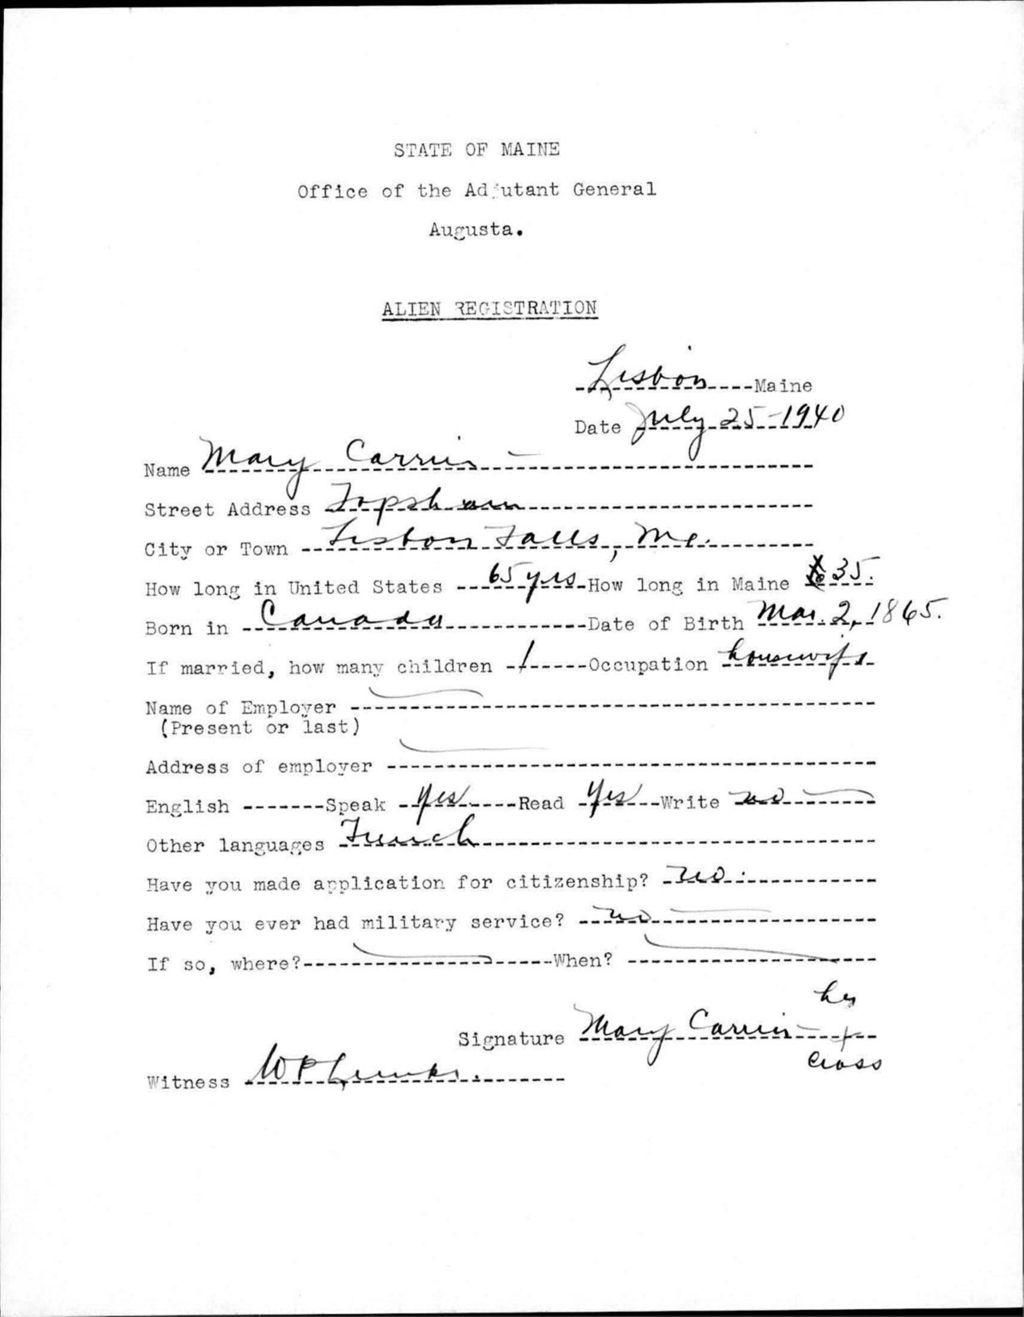 STATE OF MAINE
Office of the Adjutant General
Augusta.
ALIEN REGISTRATION
Lisbon Maine
Date July 25-1940
Name Mary
Street Address Topsham
City or Town Lisbon Falls, Me.
How long in United States 65 yrs How long in Maine 35.
Born in Canada Date of Birth Mar. 2, 1865.
If married, how many children 1 Occupation housewife
Name of Employer
(Present or last)
Address of employer
English Speak Yes Read Yes Write no
Other languages French
Have you made application for citizenship? no.
Have you ever had military service? no
If so, where? When?
her
Signature Mary x
cross
Witness W P